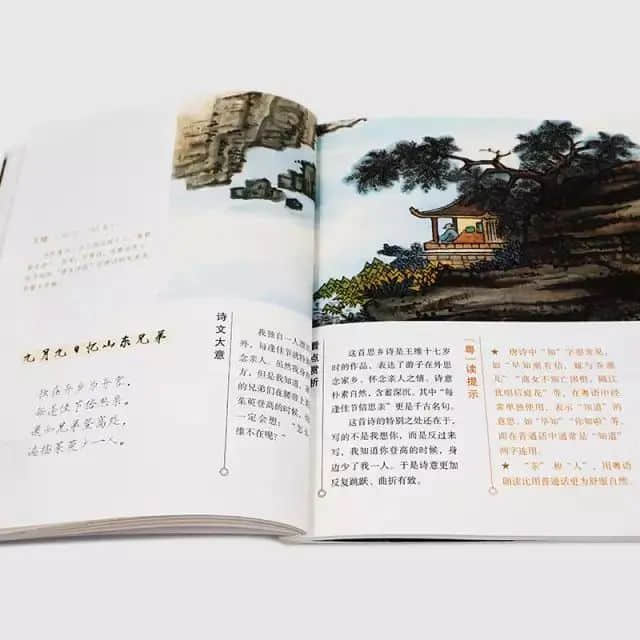 九月九日忆山东兄弟
独在异乡为异客，
每逢佳节倍思亲。
遥知兄弟登高处，
遍插茱萸少一人。
诗文大意
我独自一人漂
外，每逢佳节就特
念亲人。虽然我身
方，但是我知道，
的兄弟们在爬那上
茱萸登高的时候，
一定会想：“怎
维不在呢？”
点赏析
这首思乡诗是王维十七岁
时的作品，表达了游子在外思
念家乡、怀念亲人之情。诗意
朴素自然，含蓄深沉，其中“每
逢佳节倍思亲”更是千古名句。
这首诗的特别之处还在于，
写的不是我想你，而是反过来
写，我知道你登高的时候，身
边少了我一人。于是诗意更加
反复跳跃、曲折有致。
粤读提示
★ 唐诗中“知”字很常见，
如“早知潮有信，嫁与弄潮
儿”“商女不知亡国恨，隔江
犹唱后庭花”等。在粤语中经
常单独使用，表示“知道”的
意思，如“早知”“你知啦”等，
而在普通话中通常是“知道”
两字连用。
★ “亲”和“人”，用粤语
朗读比用普通话更为舒服自然。